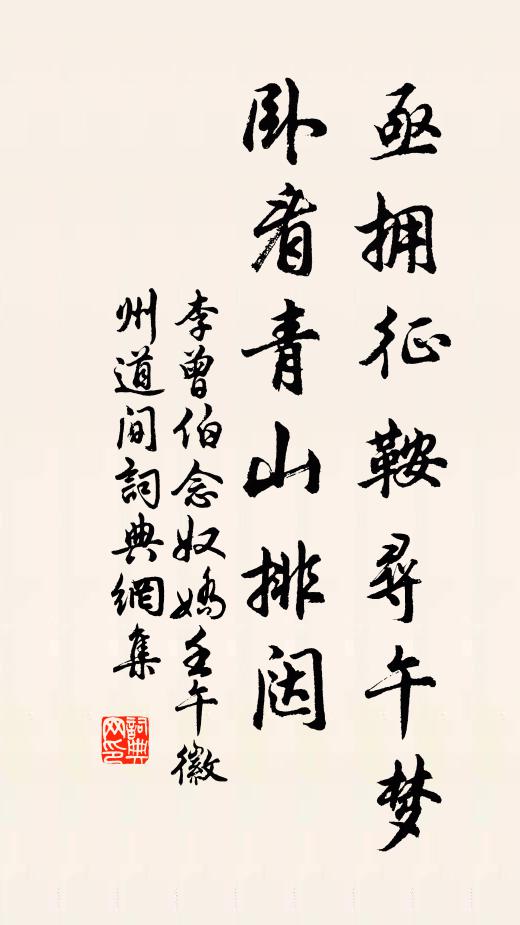 亟拥征鞍尋午梦
卧看青山排闼
李曾伯念奴嬌壬午徽
州道间詞典網集
詞典
网印